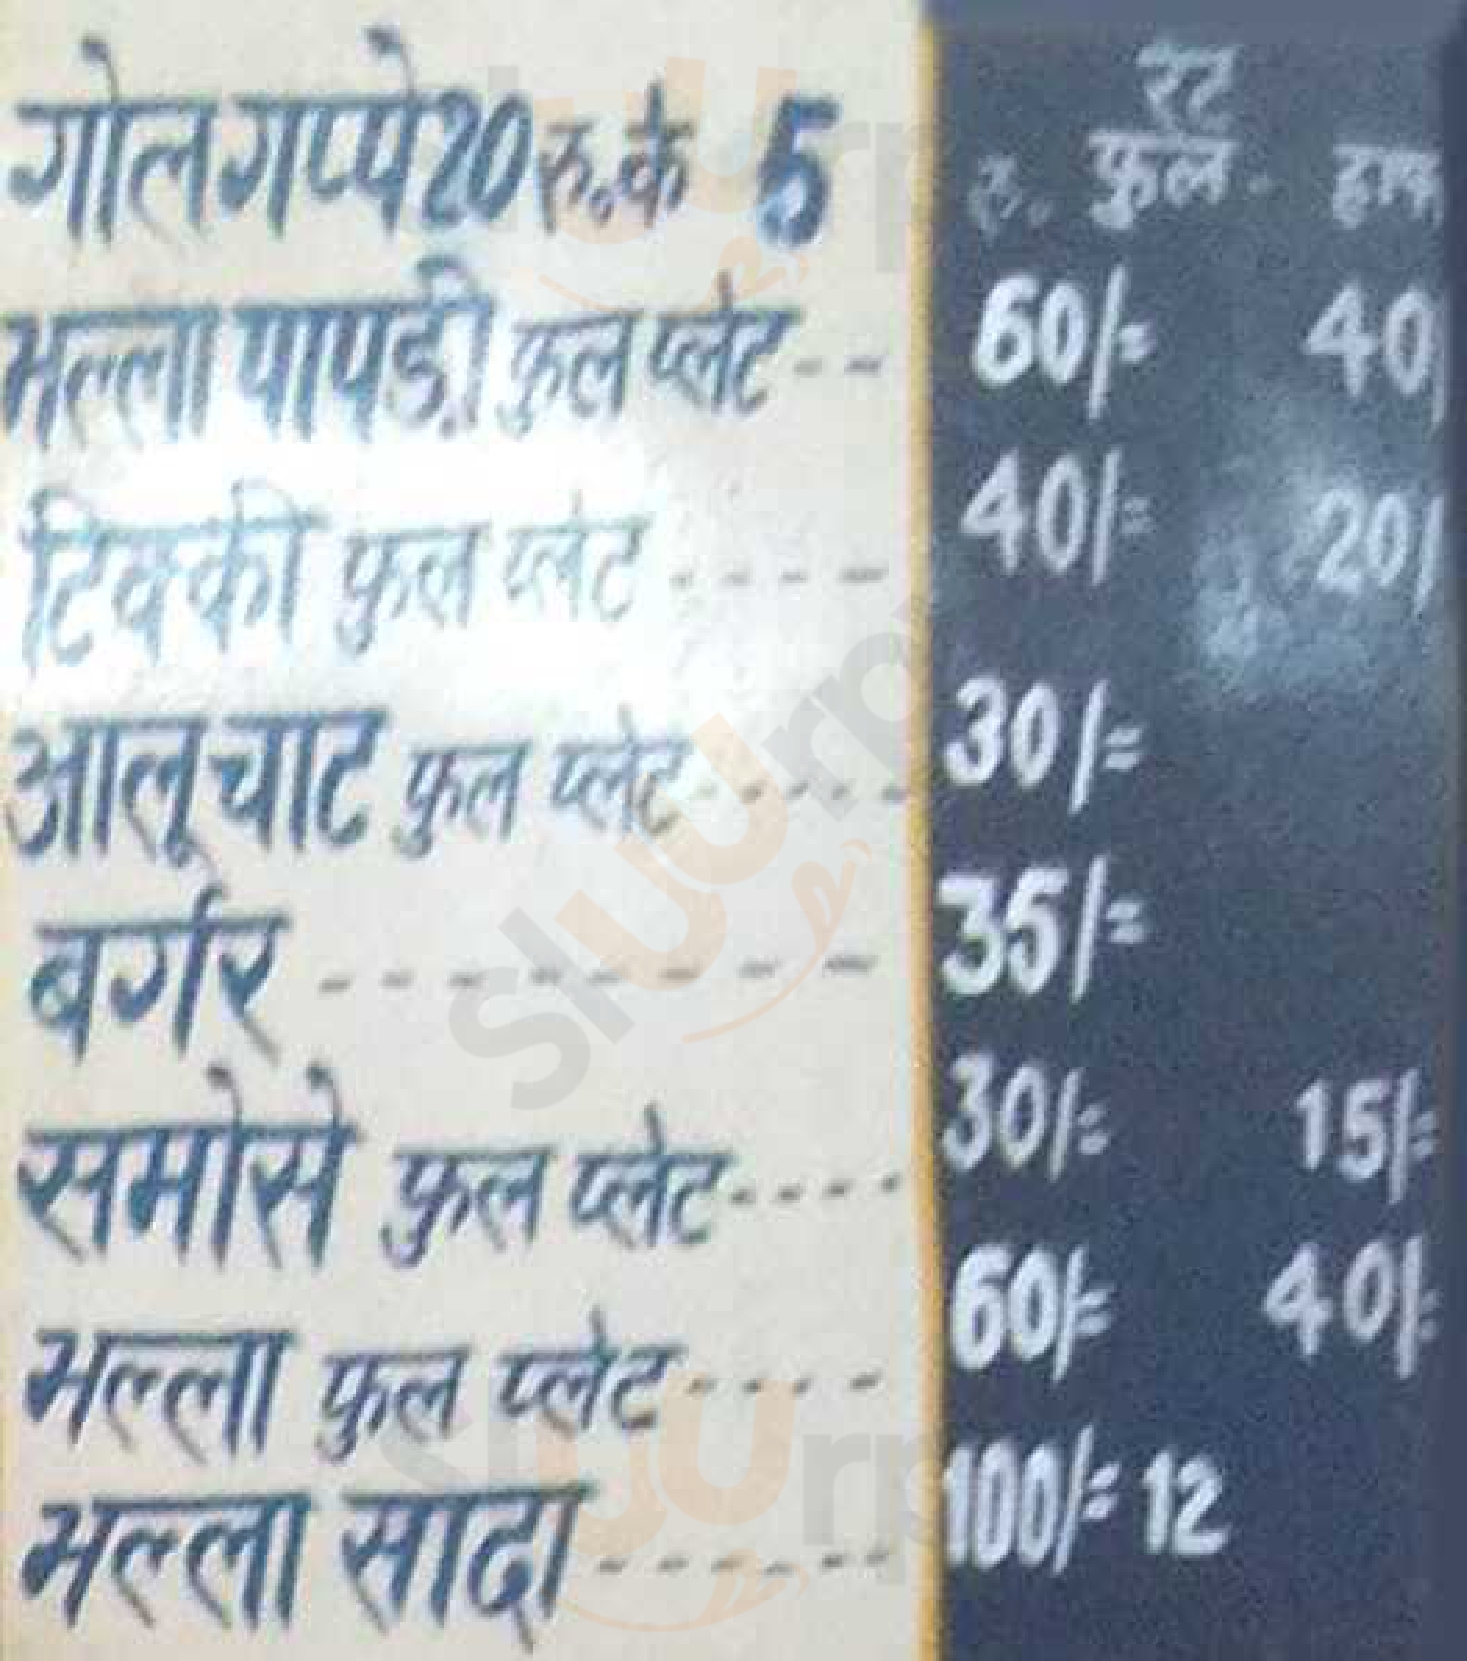 रेट
रु. फुल. हाफ
गोल गप्पे 20 रु. के 5
भल्ला पापड़ी फुल प्लेट -- 60/= 40/
टिक्की फुल प्लेट ---- 40/= 20/
आलू चाट फुल प्लेट ----- 30/=
बर्गर -------- 35/=
समोसे फुल प्लेट ---- 30/= 15/=
भल्ला फुल प्लेट ---- 60/= 40/=
भल्ला सादा ------ 100/= 12
Slurrp